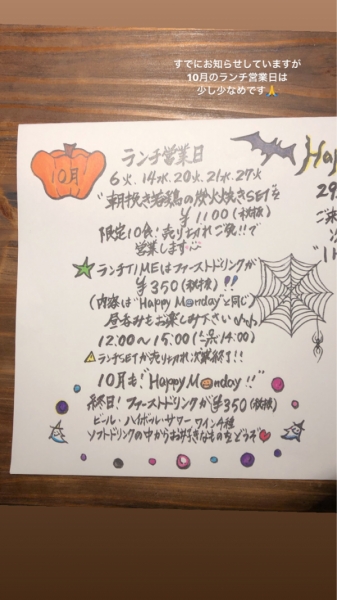 すでにお知らせしていますが
10月のランチ営業日は
少し少なめです🙏
10月
ランチ営業日
6火.14水.20火.21水.27火
"朝挽き若鶏の炭火焼きSET"を
¥1100(税抜)
限定10食!売り切れご免!!で
営業します
ランチTIMEはファーストドリンクが
¥350(税抜)!!
(内容は"Happy Monday"と同じ)
昼呑みもお楽しみ下さい♪♪
12:00〜15:00(L.O.14:00)
ランチSETが売り切れ次第終了!!
10月も!"Happy Monday!!"
終日!ファーストドリンクが¥350(税抜)
ビール・ハイボール・サワー・ワイン4種
ソフトドリンクの中からお好きなものをどうぞ
Hap
29
ご来